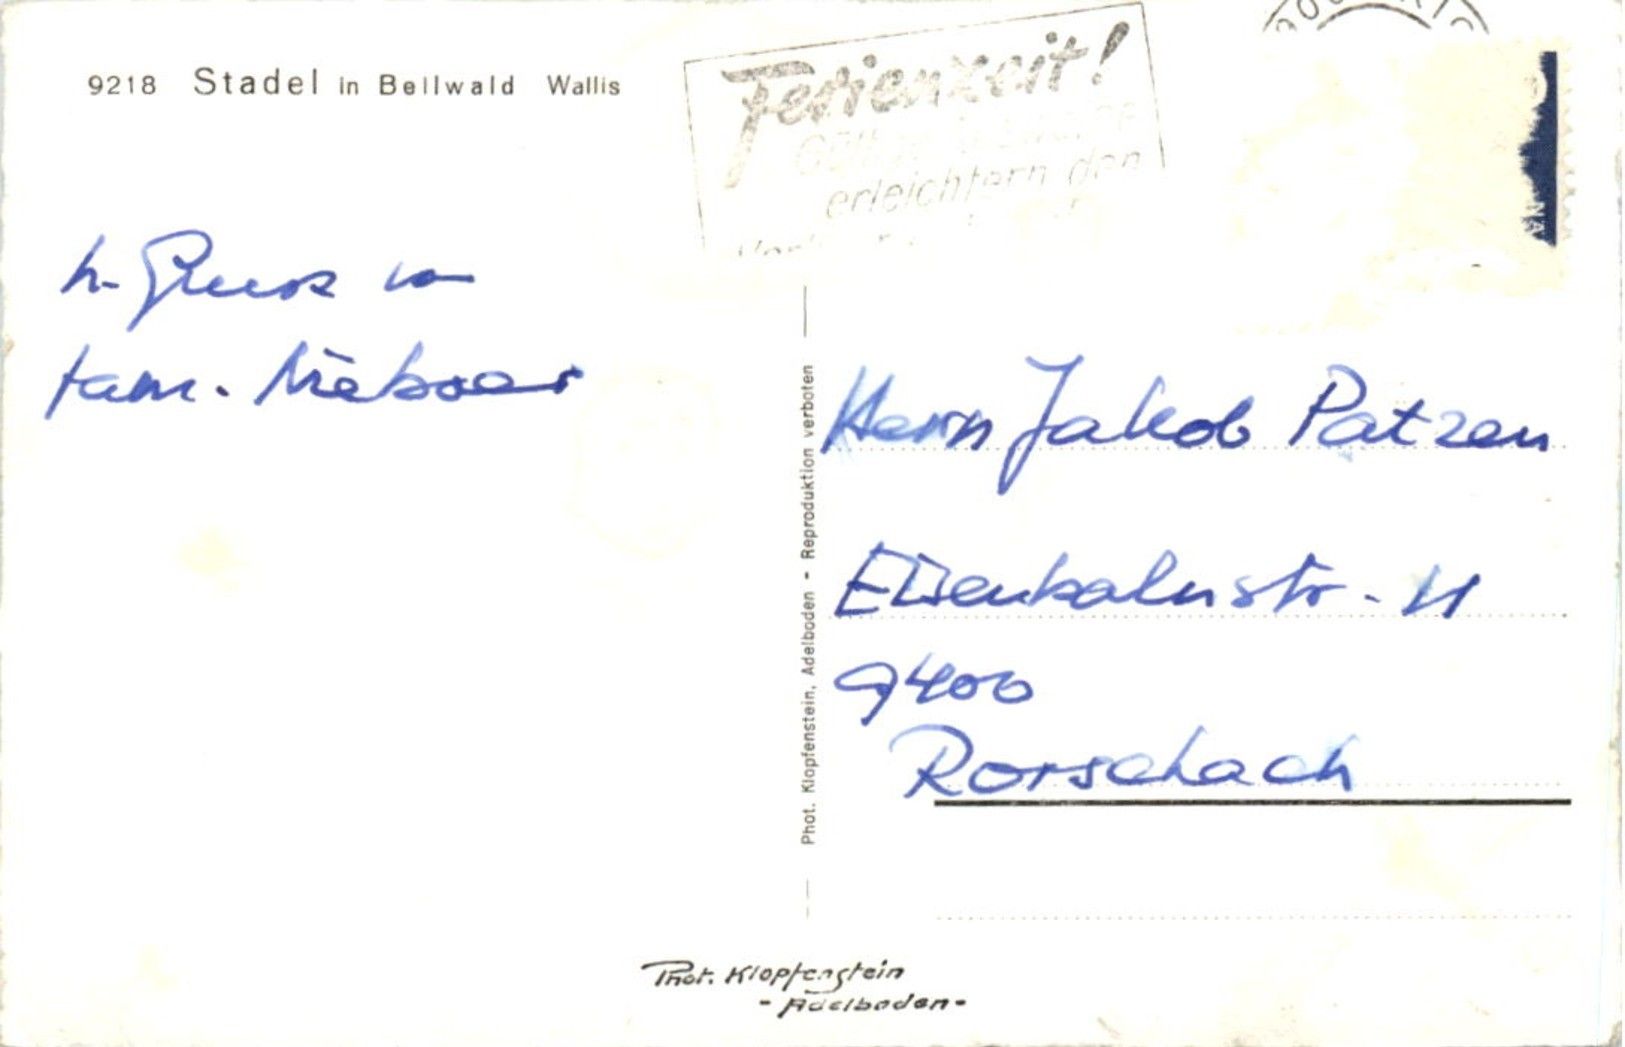 9218 Stadel in Bellwald Wallis
Ferienzeit!
erleichtern den
h. Gruss von
Fam.
Herrn Jakob Patzen
Eisenbahnstr. 11
9400
Rorschach
Phot. Klopfenstein, Adelboden - Reproduktion verboten
Phot. Klopfenstein
- Adelboden -